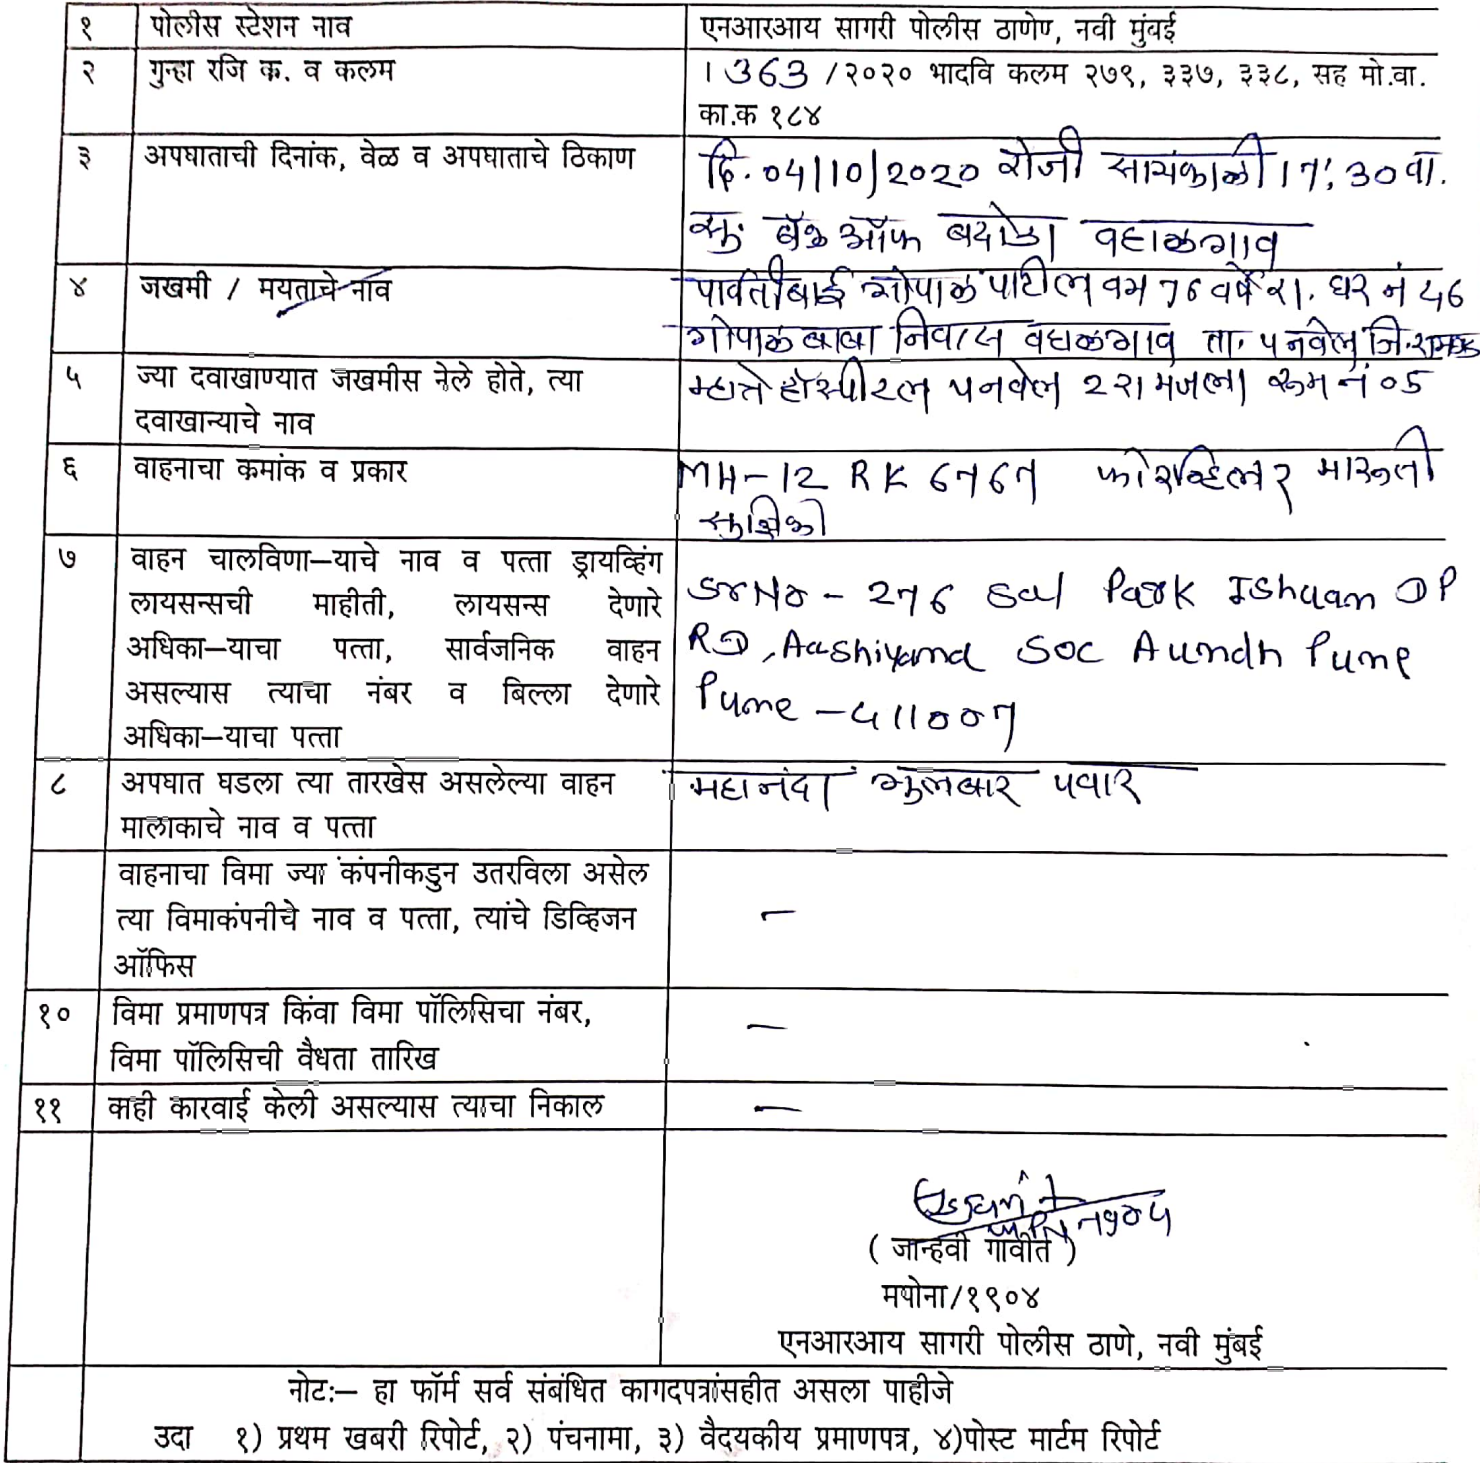 १ पोलीस स्टेशन नाव एनआरआय सागरी पोलीस ठाणेण, नवी मुंबई
२ गुन्हा रजि क. व कलम । 363 /२०२० भादवि कलम २७९, ३३७, ३३८, सह मो.वा.
का.क १८४
३ अपघाताची दिनांक, वेळ व अपघाताचे ठिकाण दि. ०4/10/2020 रोजी सायंकाळी 17:30 वा.
बँक ऑफ बदोडा वहाळगाव
४ जखमी / मयताचे नाव पार्वतीबाई गोपाळ पाटील वय 76 वर्षे रा. घर नं 56
गोपाळ बाबा निवास वहाळगाव ता. पनवेल जि. रायगड
५ ज्या दवाखाण्यात जखमीस नेले होते, त्या म्हात्रे हॉस्पीटल पनवेल 2 रा मजला रूम नं ०5
दवाखान्याचे नाव
६ वाहनाचा कमांक व प्रकार MH-12 RK 6767 फोरव्हिलर मारूती
सुझिकी
७ वाहन चालविणा–याचे नाव व पत्ता ड्रायव्हिंग
लायसन्सची माहीती, लायसन्स देणारे Sr No - 276 Sai Park Ishaan DP
अधिका–याचा पत्ता, सार्वजनिक वाहन RD, Aashiyana Soc Aundh Pune
असल्यास त्याचा नंबर व बिल्ला देणारे Pune - 411007
अधिका–याचा पत्ता
८ अपघात घडला त्या तारखेस असलेल्या वाहन महानंदा गुलबार पवार
मालाकाचे नाव व पत्ता
वाहनाचा विमा ज्या कंपनीकडुन उतरविला असेल
त्या विमाकंपनीचे नाव व पत्ता, त्यांचे डिव्हिजन –
ऑफिस
१० विमा प्रमाणपत्र किंवा विमा पॉलिसिचा नंबर, –
विमा पॉलिसिची वैधता तारिख
११ काही कारवाई केली असल्यास त्याचा निकाल –
( जान्हवी गावीत )
मपोना/१९०४
एनआरआय सागरी पोलीस ठाणे, नवी मुंबई
नोटः– हा फॉर्म सर्व संबंधित कागदपत्रांसहीत असला पाहीजे
उदा १) प्रथम खबरी रिपोर्ट, २) पंचनामा, ३) वैदयकीय प्रमाणपत्र, ४)पोस्ट मार्टम रिपोर्ट